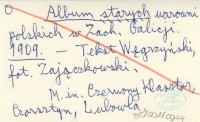 O Album starych warowni
polskich w Zach. Galicji.
1909. – Tekst Węgrzyński,
fot. Zajączkowski.
M. in. Czerwony Klasztor,
Czorsztyn, Lubowla